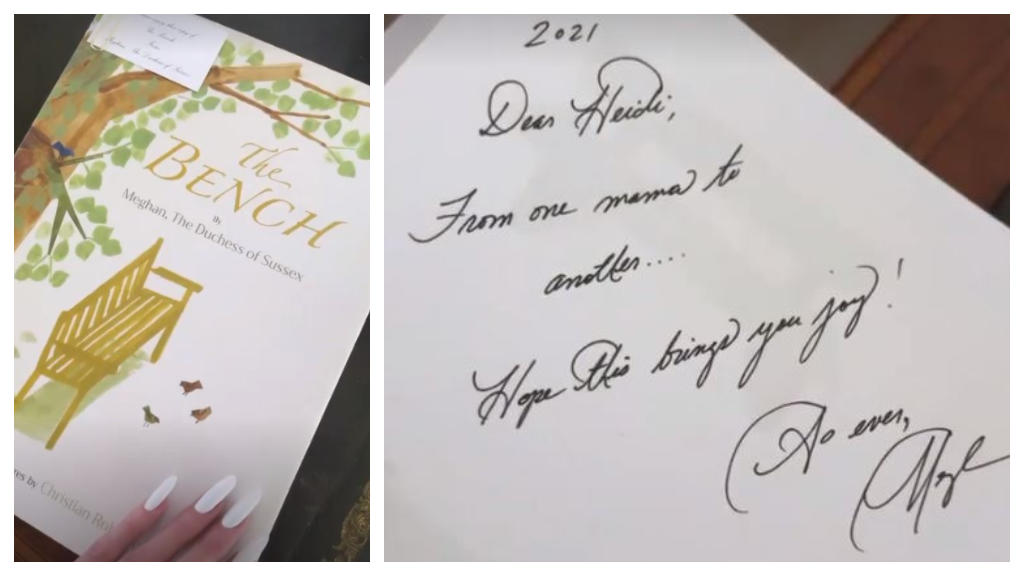 The
BENCH
By
Meghan, The Duchess of Sussex
res by Christian Rob
2021
Dear Heidi,
From one mama to
another....
Hope this brings you joy!
As ever,
Megh